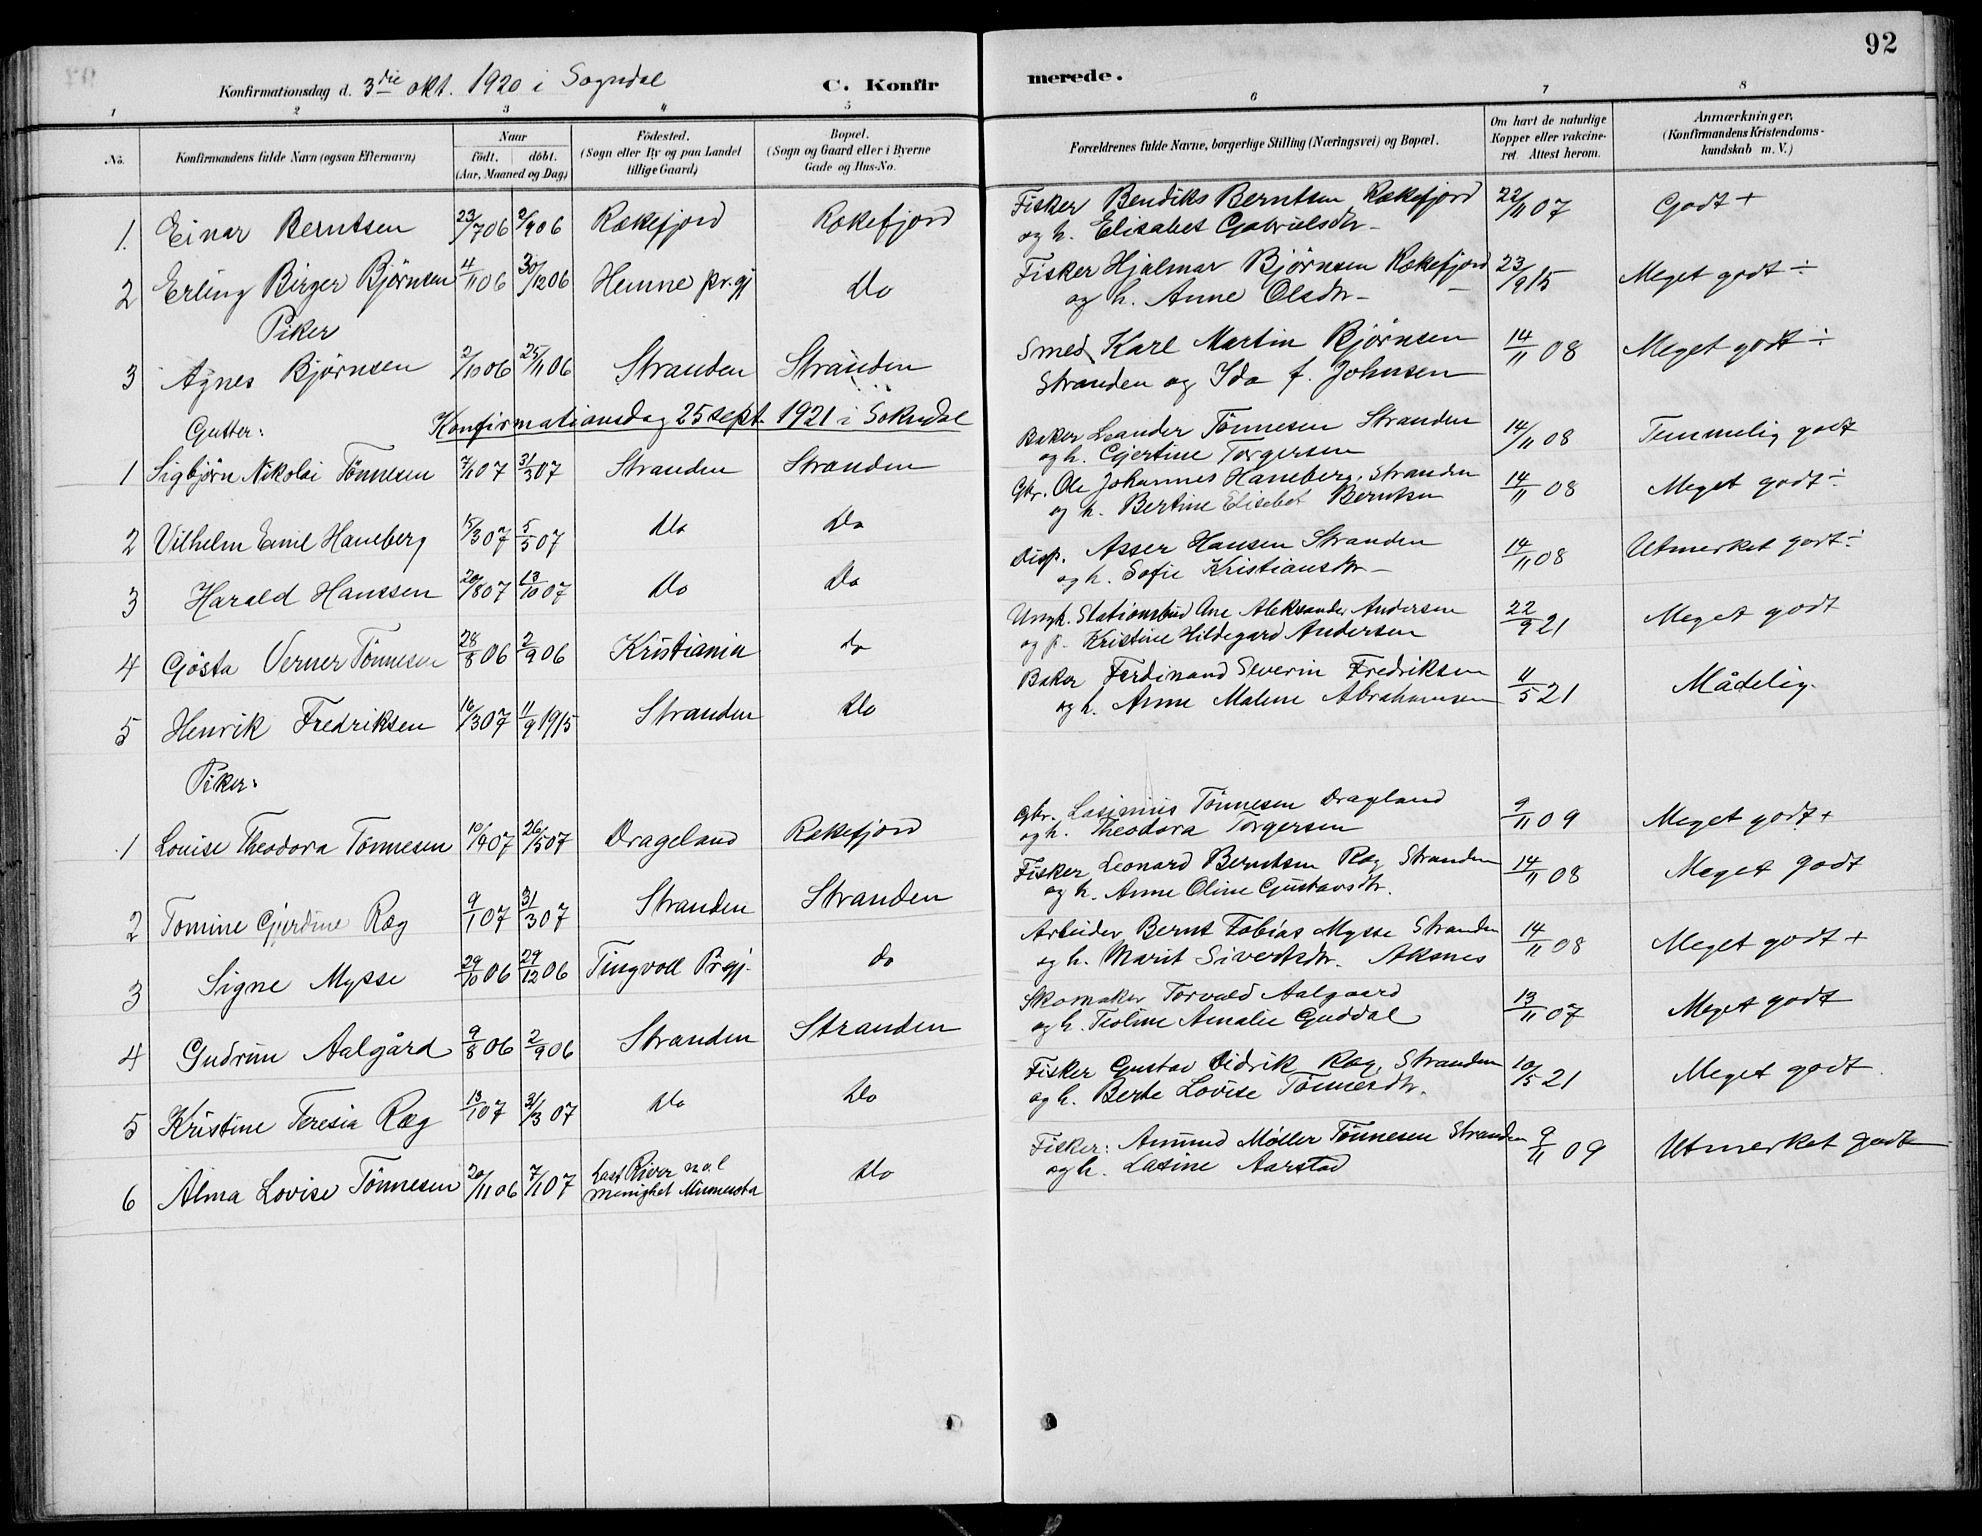 92
Konfirmationsdag d. 3die okt. 1920 i Sogndal
C. Konfirmerede.
1 2 3 4 5 6 7 8
No. Konfirmandens fulde Navn (ogsaa Efternavn) Naar født. døbt. (Aar, Maaned og Dag) Fødested. (Sogn eller By og paa Landet tillige Gaard) Bopæl. (Sogn og Gaard eller i Byerne Gade og Hus-No. Forældrenes fulde Navne, borgerlige Stilling (Næringsvei) og Bopæl. Om havt de naturlige Kopper eller vakcineret. Attest herom. Anmærkninger. (Konfirmandens Kristendomskundskab m. V.)
1. Einar Berntsen 23/7 06 2/9 06 Rækefjord Rækefjord Fisker Bendiks Berntsen Rækefjord og h. Elisabet Gabrielsdtr 22/11 07 Godt +
2 Erling Birger Bjørnsen 4/11 06 30/12 06 Hemne pr.gj Do Fisker Hjalmar Bjørnsen Rækefjord og h. Anne Olsdtr 23/9 15 Meget godt ÷
Piker
3 Agnes Bjørnsen 2/10 06 25/11 06 Stranden Stranden Smed Karl Martin Bjørnsen Stranden og Ida f. Johnsen 14/11 08 Meget godt ÷
Gutter: Konfirmationsdag 25 sept. 1921 i Sokndal
1 Sigbjørn Nikolai Tønnesen 7/1 07 31/3 07 Stranden Stranden Baker Leander Tønnesen Stranden og h. Gjertine Torgersen 14/11 08 Temmelig godt
2 Vilhelm Emil Haneberg 15/3 07 5/5 07 Do Do Gbr. Ole Johannes Haneberg, Stranden og h. Bertine Elisebet Berntsen 14/11 08 Meget godt ÷
3 Harald Hanssen 20/8 07 13/10 07 Do Do Disp. Asser Hansen Stranden og h. Sofie Kristiansdtr 14/11 08 Utmerket godt ÷
4 Gösta Verner Tønnesen 28/8 06 2/9 06 Kristiania do Ungk. Stationsbud Ane Aleksander Andersen og p. Kristine Hildegard Andersen 22/9 21 Meget godt
5 Henrik Fredriksen 16/3 07 11/9 1915 Stranden Do Baker Ferdinand Severin Fredriksen og h. Anne Malene Abrahamsen 11/5 21 Mådelig.
Piker:
1 Louise Theodora Tønnesen 10/4 07 26/5 07 Drageland Rækefjord Gbr. Lasimus Tønnesen Drageland og h. Theodora Torgersen 9/11 09 Meget godt +
2 Tomine Gjerdine Ræg 9/1 07 31/3 07 Stranden Stranden Fisker Leonard Berntsen Ræg Stranden og h. Anne Oline Gustavsdtr. 14/11 08 Meget godt
3 Signe Mysse 29/10 06 29/12 06 Tingvoll Prgj. do Arbeider Bernt Tobias Mysse Stranden og h. Marit Sivertsdtr. Aksnes 14/11 08 Meget godt +
4 Gudrun Aalgård 9/8 06 2/9 06 Stranden Stranden Skomaker Torvald Aalgaard og h. Teoline Amalie Guddal 13/11 07 Meget godt
5 Kristine Teresia Ræg 13/1 07 31/3 07 Do Do Fisker Gustav Didrik Ræg, Stranden og h. Berte Lovise Tønnesdtr. 10/5 21 Meget godt.
6 Alma Lovise Tønnesen 20/11 06 7/1 07 East River menighet Minnesota Do Fisker: Amund Møller Tønnesen Stranden og h. Lasine Aarstad 9/11 09 Utmerket godt